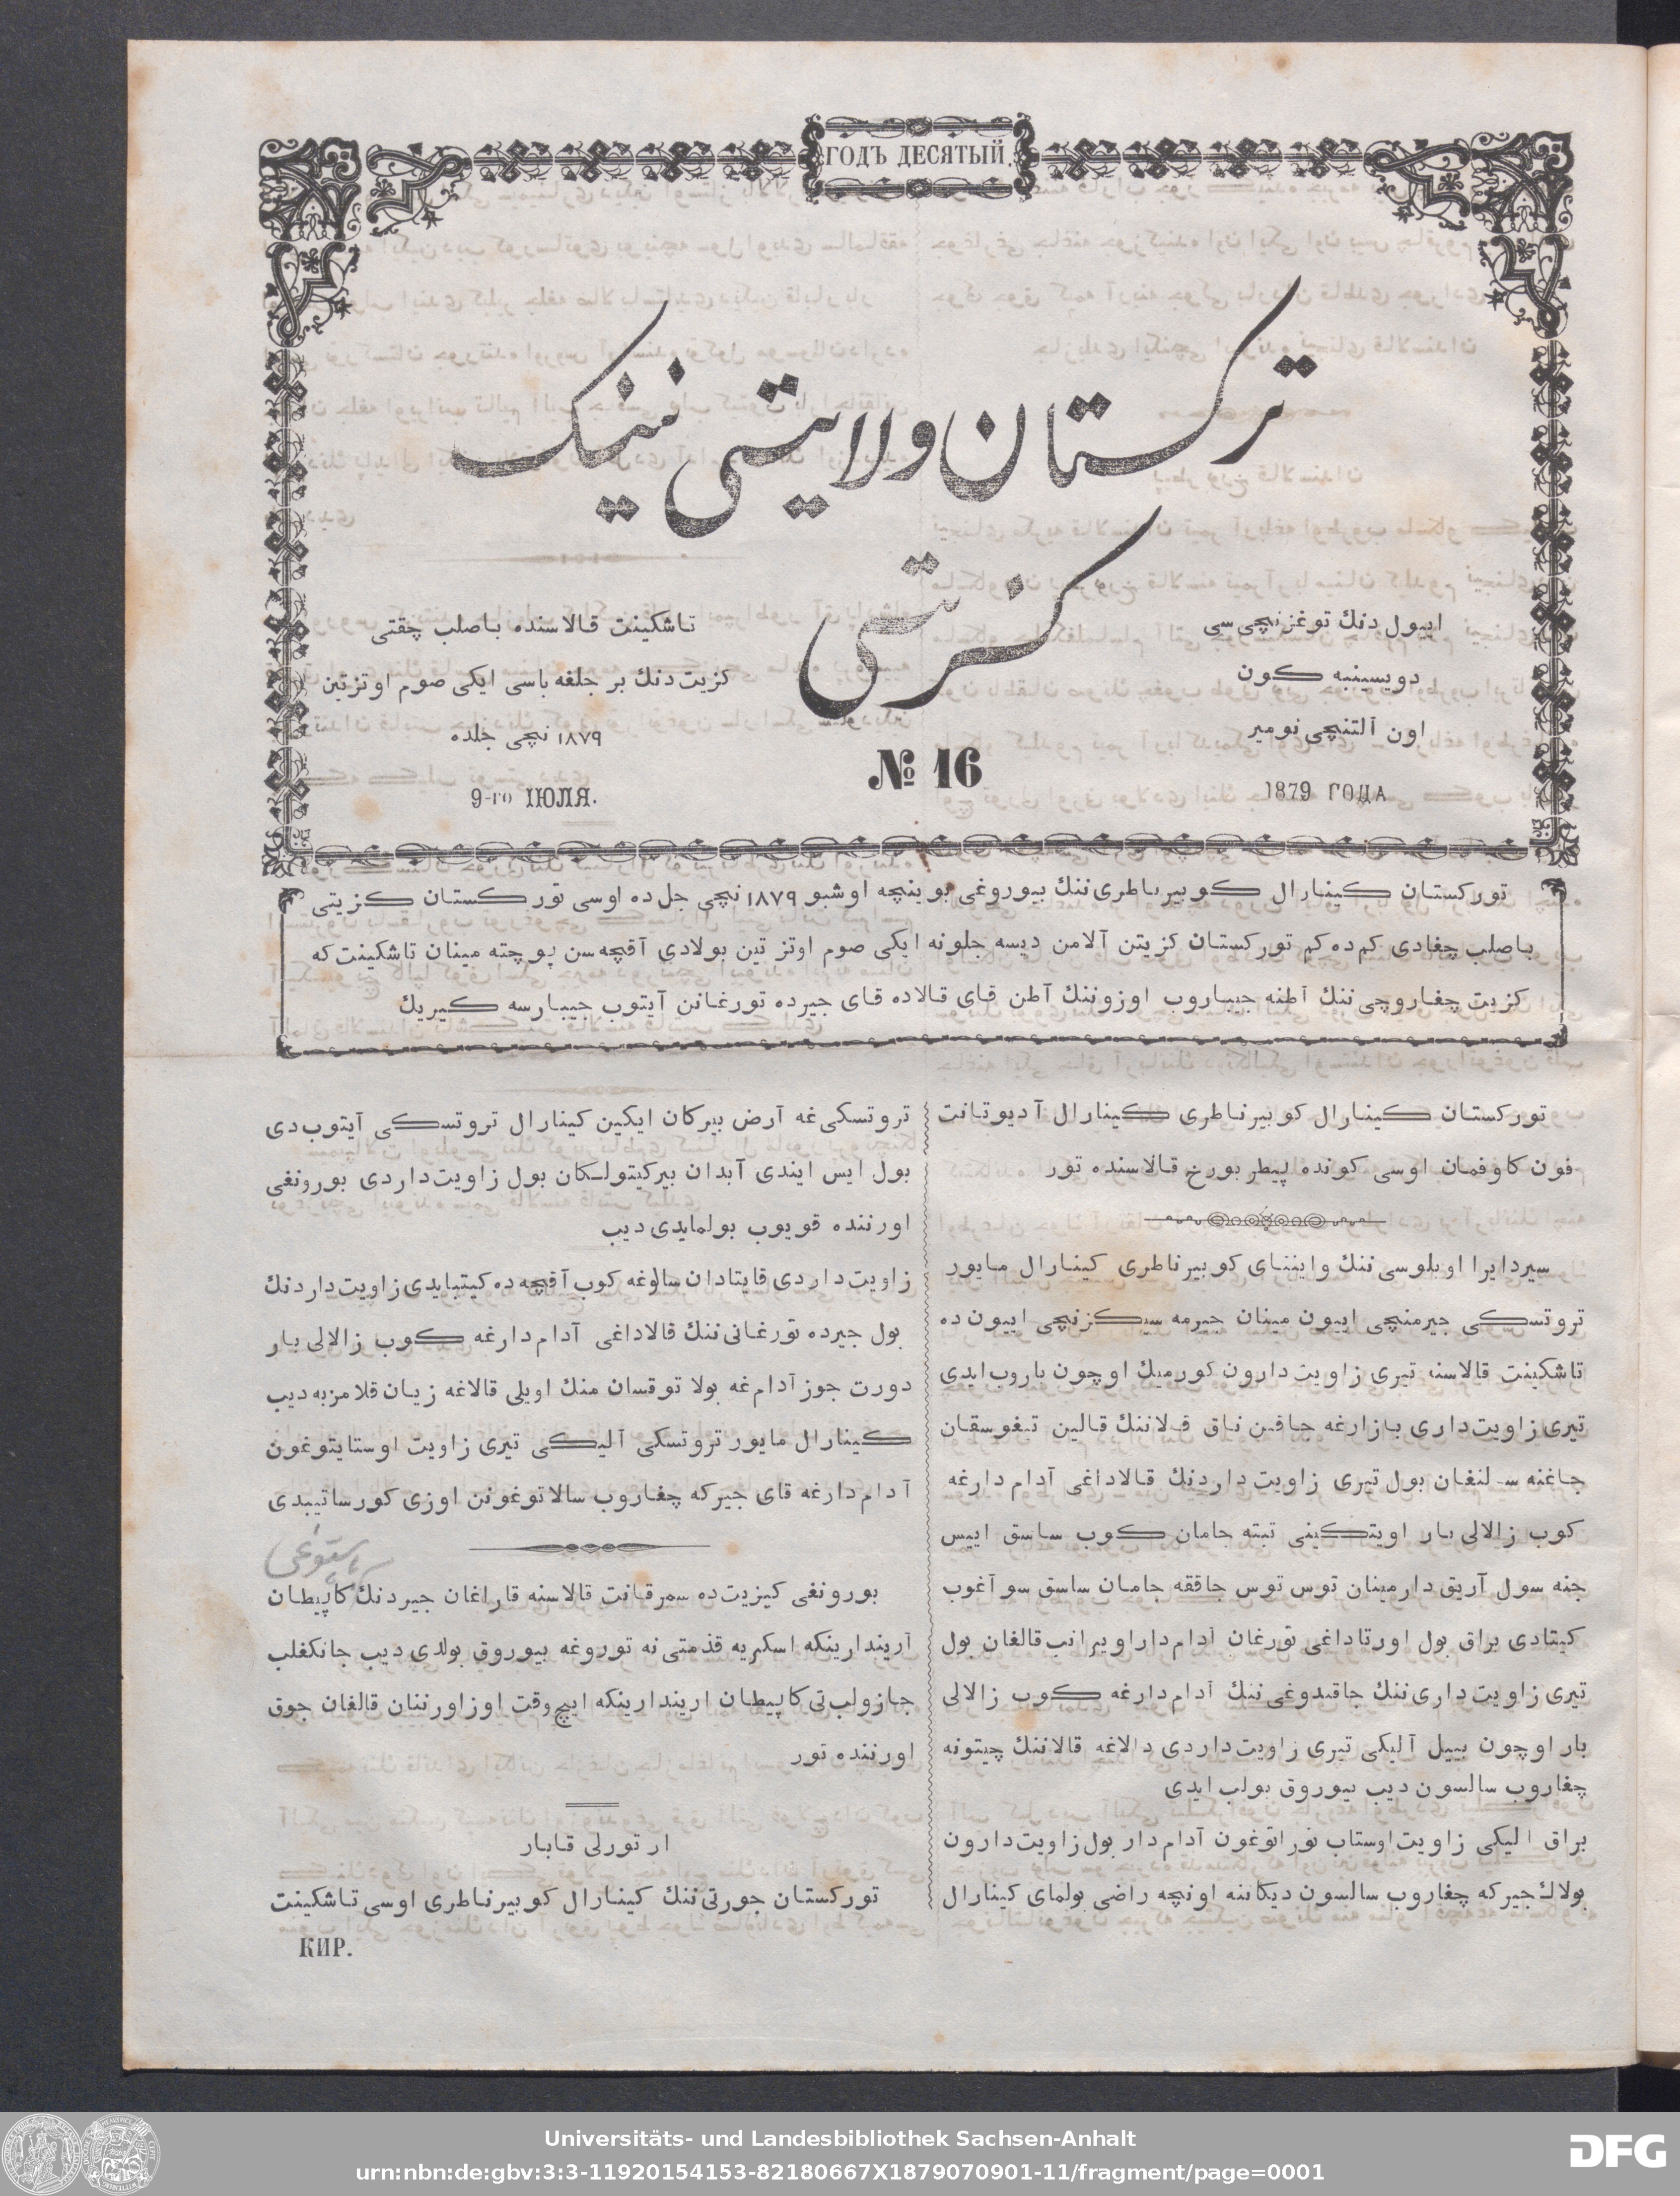 ГОДЪ ДЕСЯТЫЙ.
ترکستان ولایتی نینک
کزیتی
ایپول دنك توغزنچی سی
دویسینبه کون
اون آلتنچی نومیر
1879 ГОДА
№ 16
تاشکینت قالاسنده باصلب چقتی
کزیت دنك بر جلغه باسی ایکی صوم اوتزتین
١٨٧٩ نچی جلده
9-го ІЮЛЯ.
تورکستان کینارال کوبیرناطری ننك بیوروغی بوینچه اوشبو ١٨٧٩ نچی جل ده اوسی تورکستان کزیتی
باصلب چغادی کم ده کم تورکستان کزیتن آلامن دیسه جلونه ایکی صوم اوتز تین بولادی آقچه سن پوچته مینان تاشکینت که
کزیت چغاروچی ننك آطنه جیباروب اوزوننك آطن قای قالاده قای جیرده تورغانن آیتوب جیبارسه کیریك
تورکستان کینارال کوبیرناطری کینارال آدیوتانت
فون کاوفمان اوسی کونده پیطربورخ قالاسنده تور
سیردایرا اوبلوسی ننك واینناي کوبیرناطری کینارال مایور
تروتسکی جیرمنچی اییون مینان جیرمه سیکزنچی اییون ده
تاشکینت قالاسنه تیری زاویت دارون کورمیك اوچون باروب ایدی
تیری زاویت داری بازارغه جاقین ناق قلاننك قالین تیغوسقان
جاغنه سالنغان بول تیری زاویت داردنك قالاداغی آدام دارغه
کوب زالالی بار اویتکینی تبته جامان کوب ساسق اییس
جنه سول آریق دارمینان توس توس جاققه جامان ساسق سو آغوب
کیتادی براق بول اورتاداغی تورغان آدام دار اویرانب قالغان بول
تیری زاویت داری ننك جاقندوغی ننك آدام دارغه کوب زالالی
بار اوچون بییل آلیکی تیری زاویت داردی دالاغه قالاننك چیتونه
چغاروب سالسون دیب بیوروق بولب ایدی
براق الیکی زاویت اوستاب توراتوغون آدام دار بول زاویت دارون
بولاك جیرکه چغاروب سالسون دیکاننه اونچه راضی بولمای کینارال
تروتسکی غه آرض بیرکان ایکین کینارال تروتسکی آیتوب دی
بول ایس ایندی آبدان بیرکیتولکان بول زاویت داردی بورونغی
اورننده قویوب بولمایدی دیب
زاویت داردی قایتادان سالوغه کوب آقچه ده کیتبایدی زاویت داردنك
بول جیرده تورغانی ننك قالاداغی آدام دارغه کوب زالالی بار
دورت جوز آدام غه بولا توقسان منك اویلی قالاغه زیان قلامزبه دیب
کینارال مایور تروتسکی آلیکی تیری زاویت اوستایتوغون
آدام دارغه قای جیرکه چغاروب سالاتوغونن اوزی کورساتیبدی
بورونغی کیزیت ده سمرقانت قالاسنه قاراغان جیردنك کاپیطان
آریندارینکه اسکریه قذمتی نه توروغه بیوروق بولدی دیب جانکغلب
جازولب تی کاپیطان اریندارینکه ایچ وقت اوز اورننان قالغان جوق
اورننده تور
ار تورلی قابار
تورکستان جورتی ننك کینارال کوبیرناطری اوسی تاشکینت
КИР.
Universitäts- und Landesbibliothek Sachsen-Anhalt
urn:nbn:de:gbv:3:3-11920154153-82180667X1879070901-11/fragment/page=0001
DFG